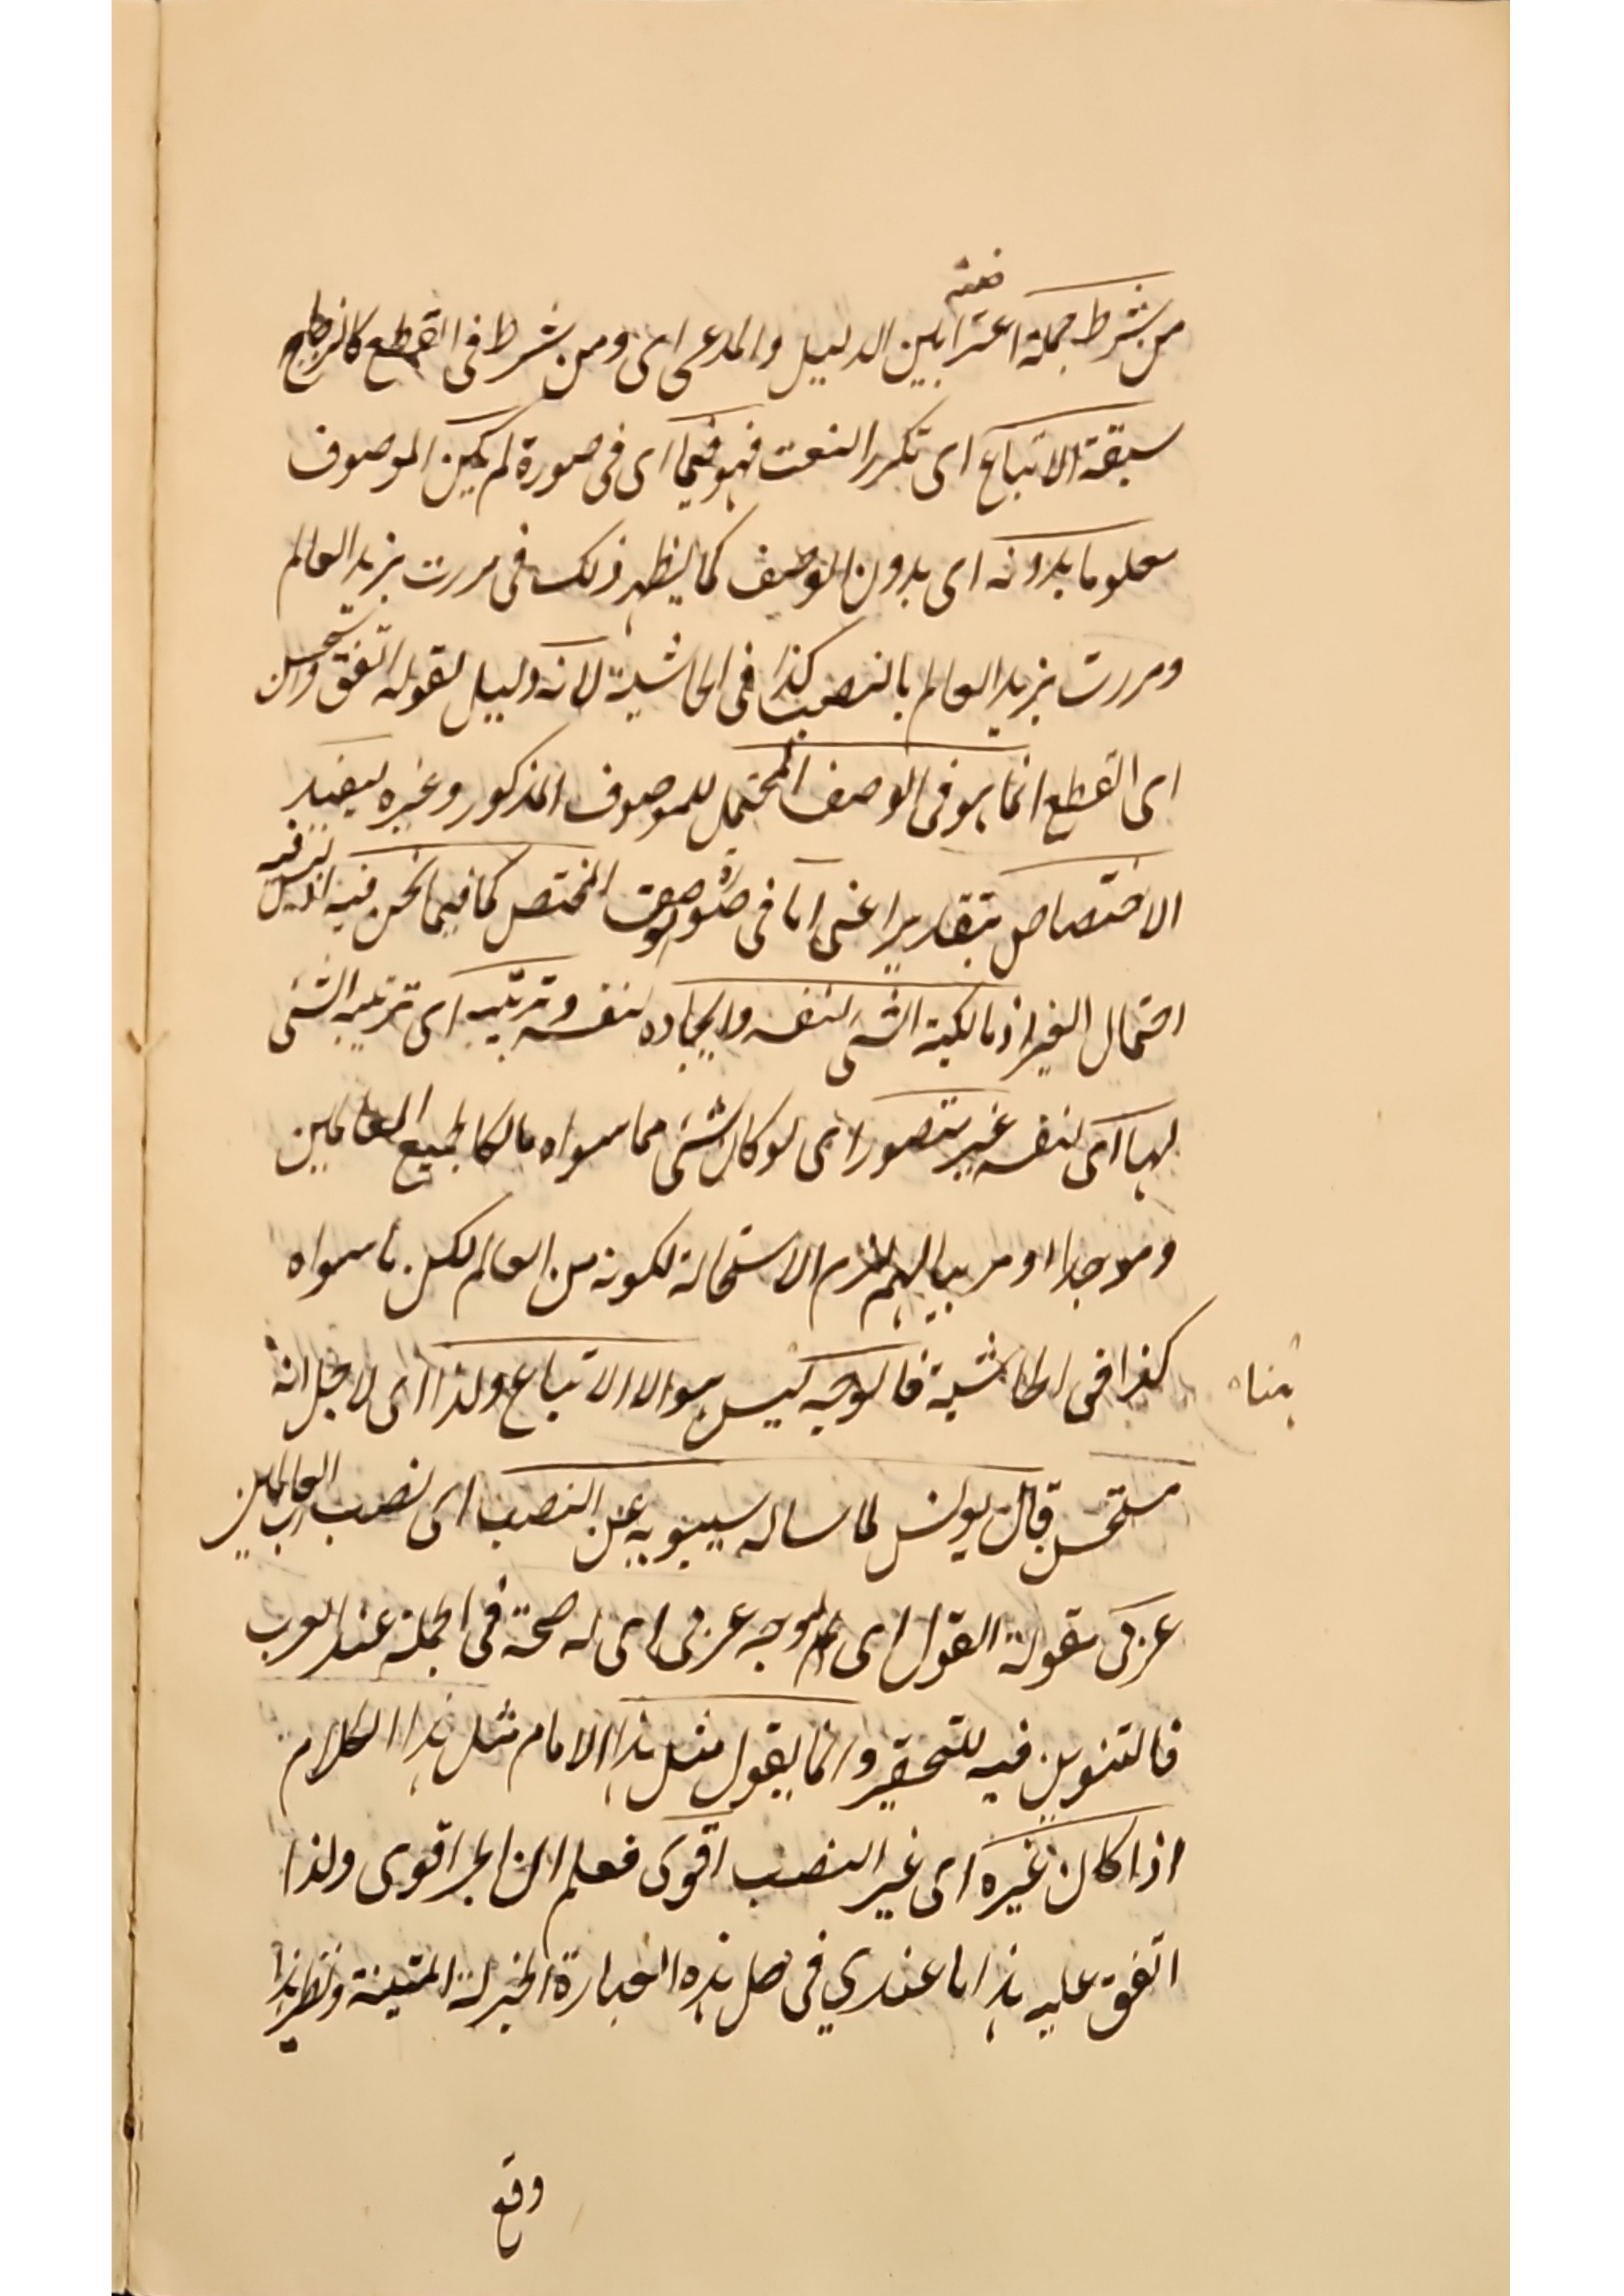 من شرط جملة اعتراضية بين الدليل والمدعى اى ومن شرط فى القطع كالزجاج
سبقة الاتباع اى تكرر النعت فهو فيما اى فى صورة لم يكن الموصوف
معلوما بدونه اى بدون الوصف كما يظهر ذلك فى مررت بزيد العالم
ومررت بزيد العالم بالنصب كذا فى الحاشية لانه دليل لقوله اتفق واستحسن
اى القطع انما هو فى الوصف المحتمل للموصوف المذكور وغيره ليفيد
الاختصاص بتقدير اعنى اما فى صورة وصف المختص كما فيما نحن فيه اذ ليس فيه
احتمال الغير اذ مالكية الشئ لنفسه وايجاده لنفسه وتربيته اى تربية الشئ
لها اى لنفسه غير متصور اى لو كان شئ مما سواه مالكا لجميع العالمين
وموجدا ومربيا لهم لزم الاستحالة لكونه من العالم لكن ما سواه
كذا فى الحاشية فالوجه ليس هو الا الاتباع ولذا اى لاجل انه
هناه
مستحسن قال يونس لما ساله سيبويه عن النصب اى نصب رب العالمين
عربى مقولة القول اى له وجه عربى اى له صحة فى الجملة عند العرب
فالتنوين فيه للتحقير وانما يقول مثل هذا الامام مثل هذا الكلام
اذا كان غيره اى غير النصب اقوى فعلم ان الجر اقوى ولذا
اتفق عليه هذا ما عندي فى حل هذه العبارة الجزلة المتينة ونظير هذا
وقع